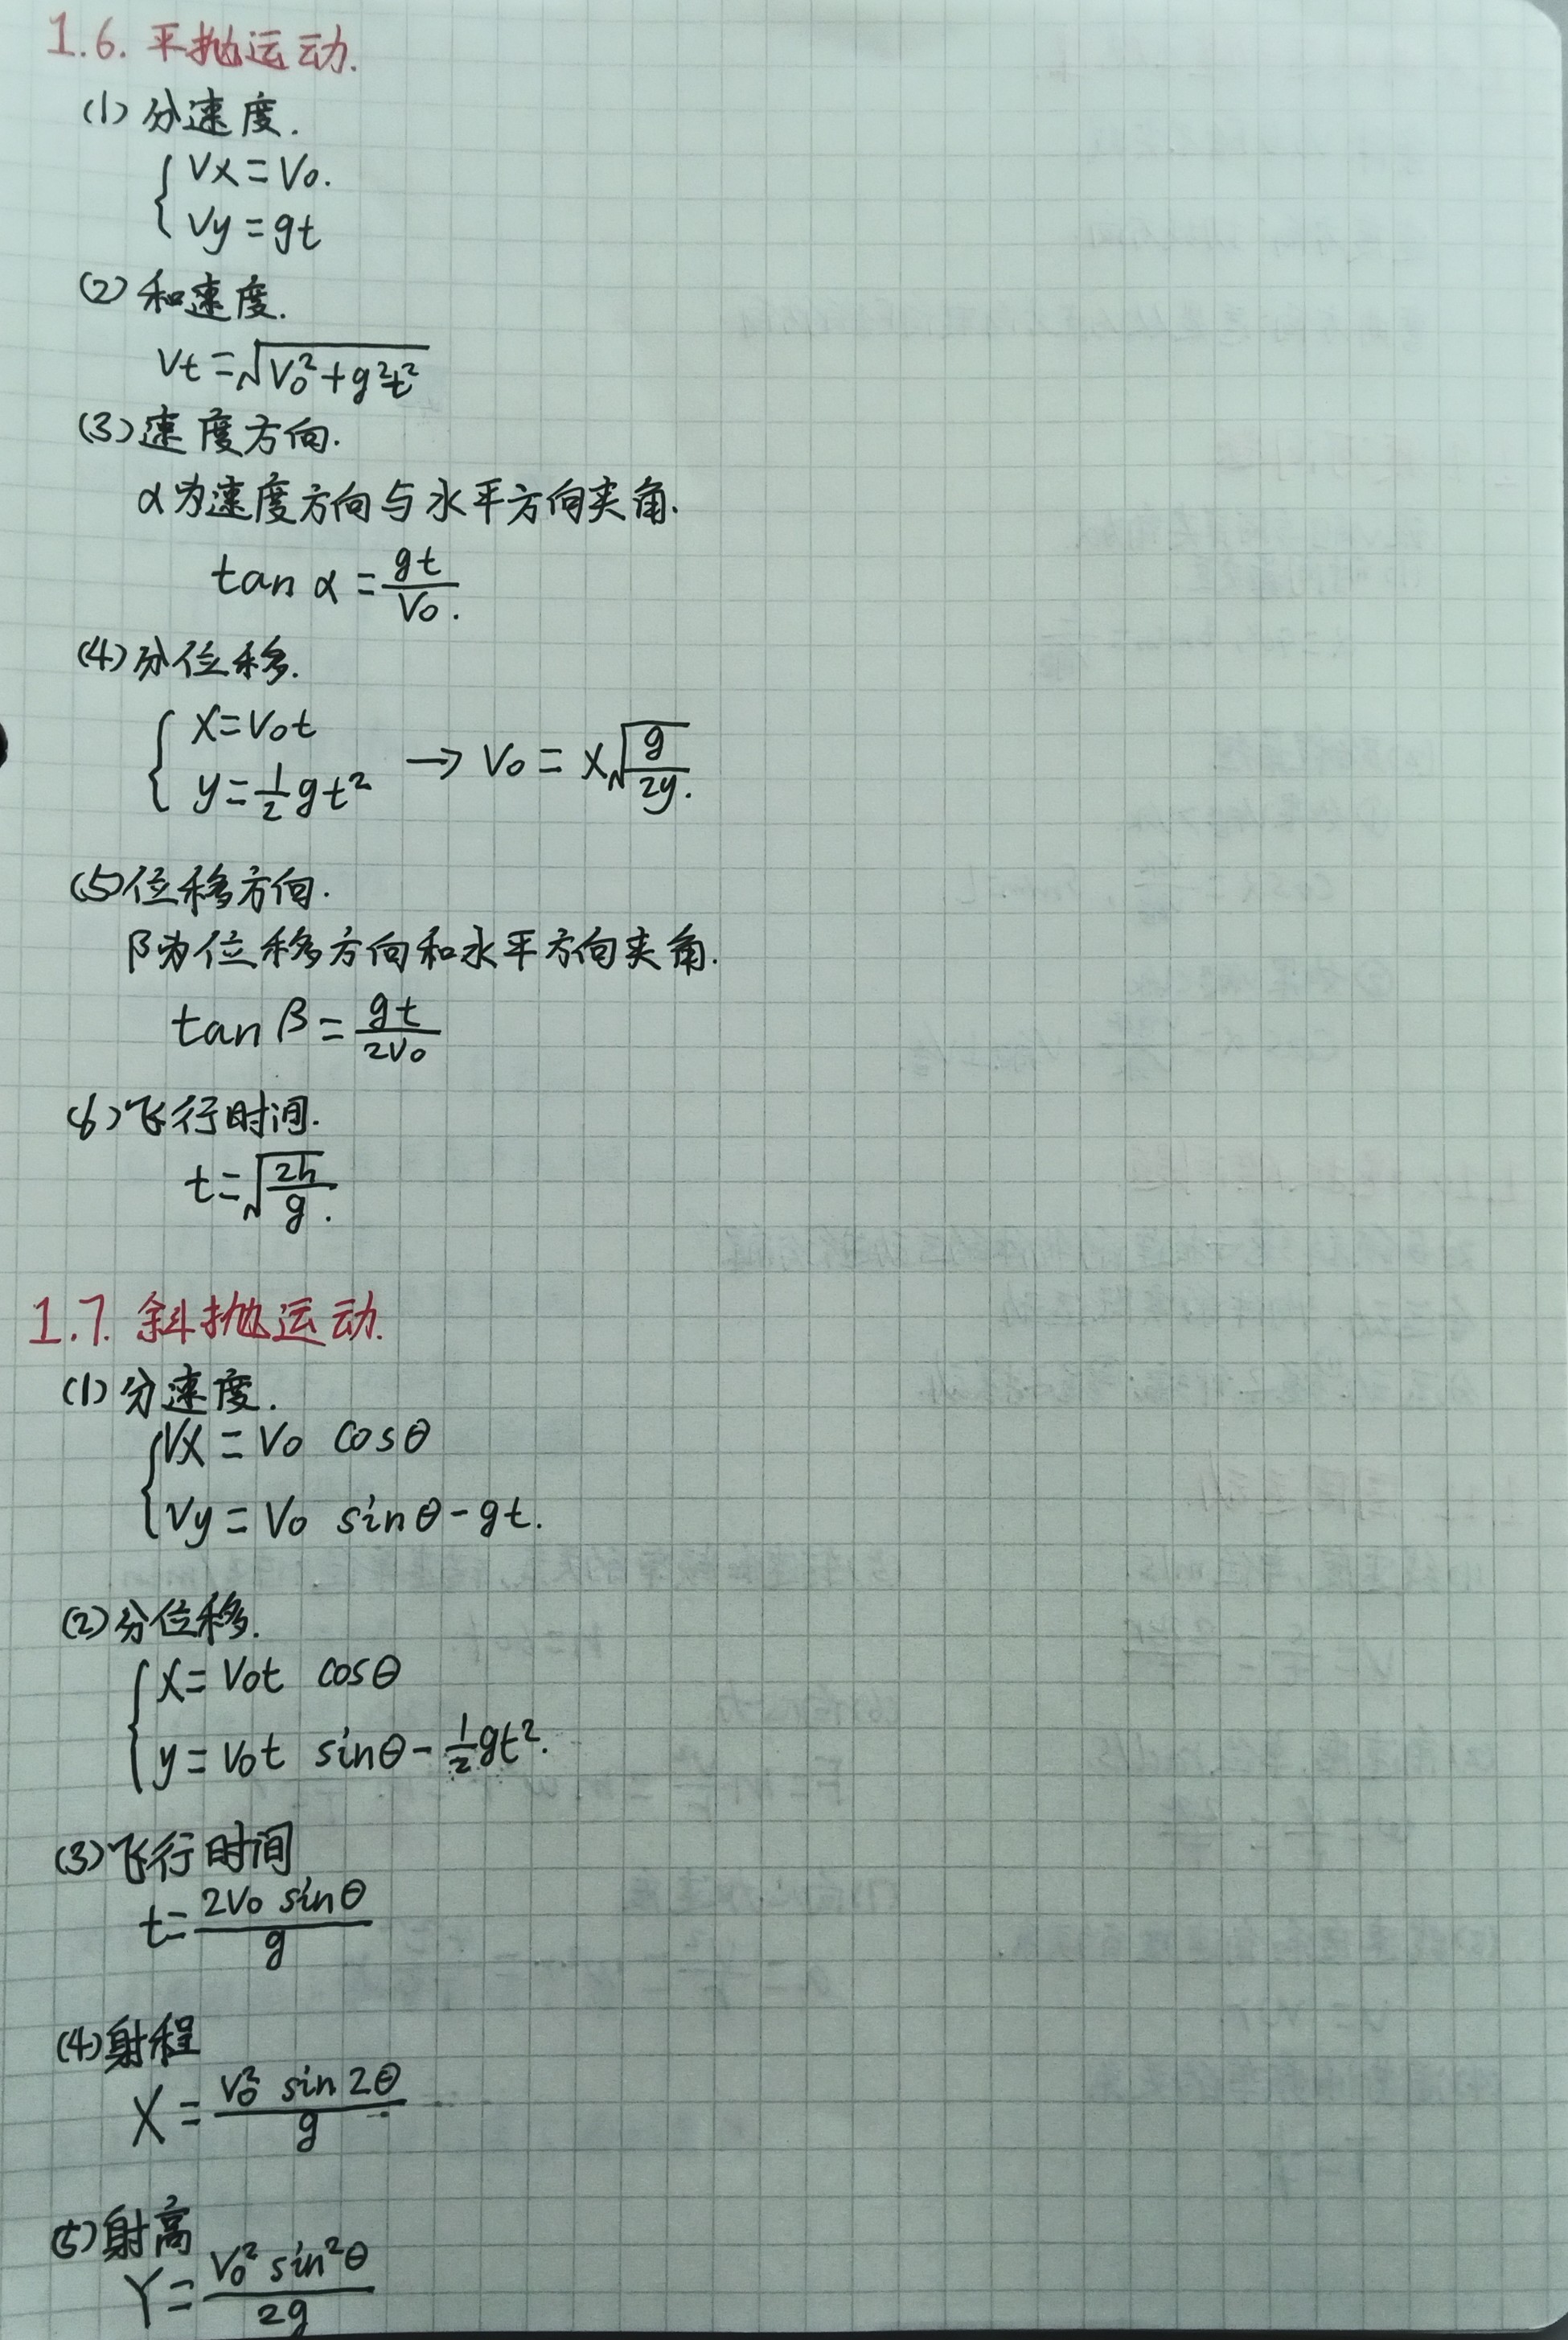 1.6. 平抛运动.
(1) 分速度.
{ Vx = V₀.
Vy = gt
(2) 和速度.
Vt = √(V₀² + g²t²)
(3) 速度方向.
α为速度方向与水平方向夹角.
tan α = gt/V₀.
(4) 分位移.
{ x = V₀t
y = 1/2 gt² → V₀ = x√(g/2y).
(5) 位移方向.
β为位移方向和水平方向夹角.
tan β = gt/2V₀
(6) 飞行时间.
t = √(2h/g).
1.7. 斜抛运动.
(1) 分速度.
{ Vx = V₀ cosθ
Vy = V₀ sinθ - gt.
(2) 分位移.
{ x = V₀t cosθ
y = V₀t sinθ - 1/2 gt².
(3) 飞行时间
t = 2V₀ sinθ/g
(4) 射程
X = V₀² sin2θ/g
(5) 射高
Y = V₀² sin²θ/2g